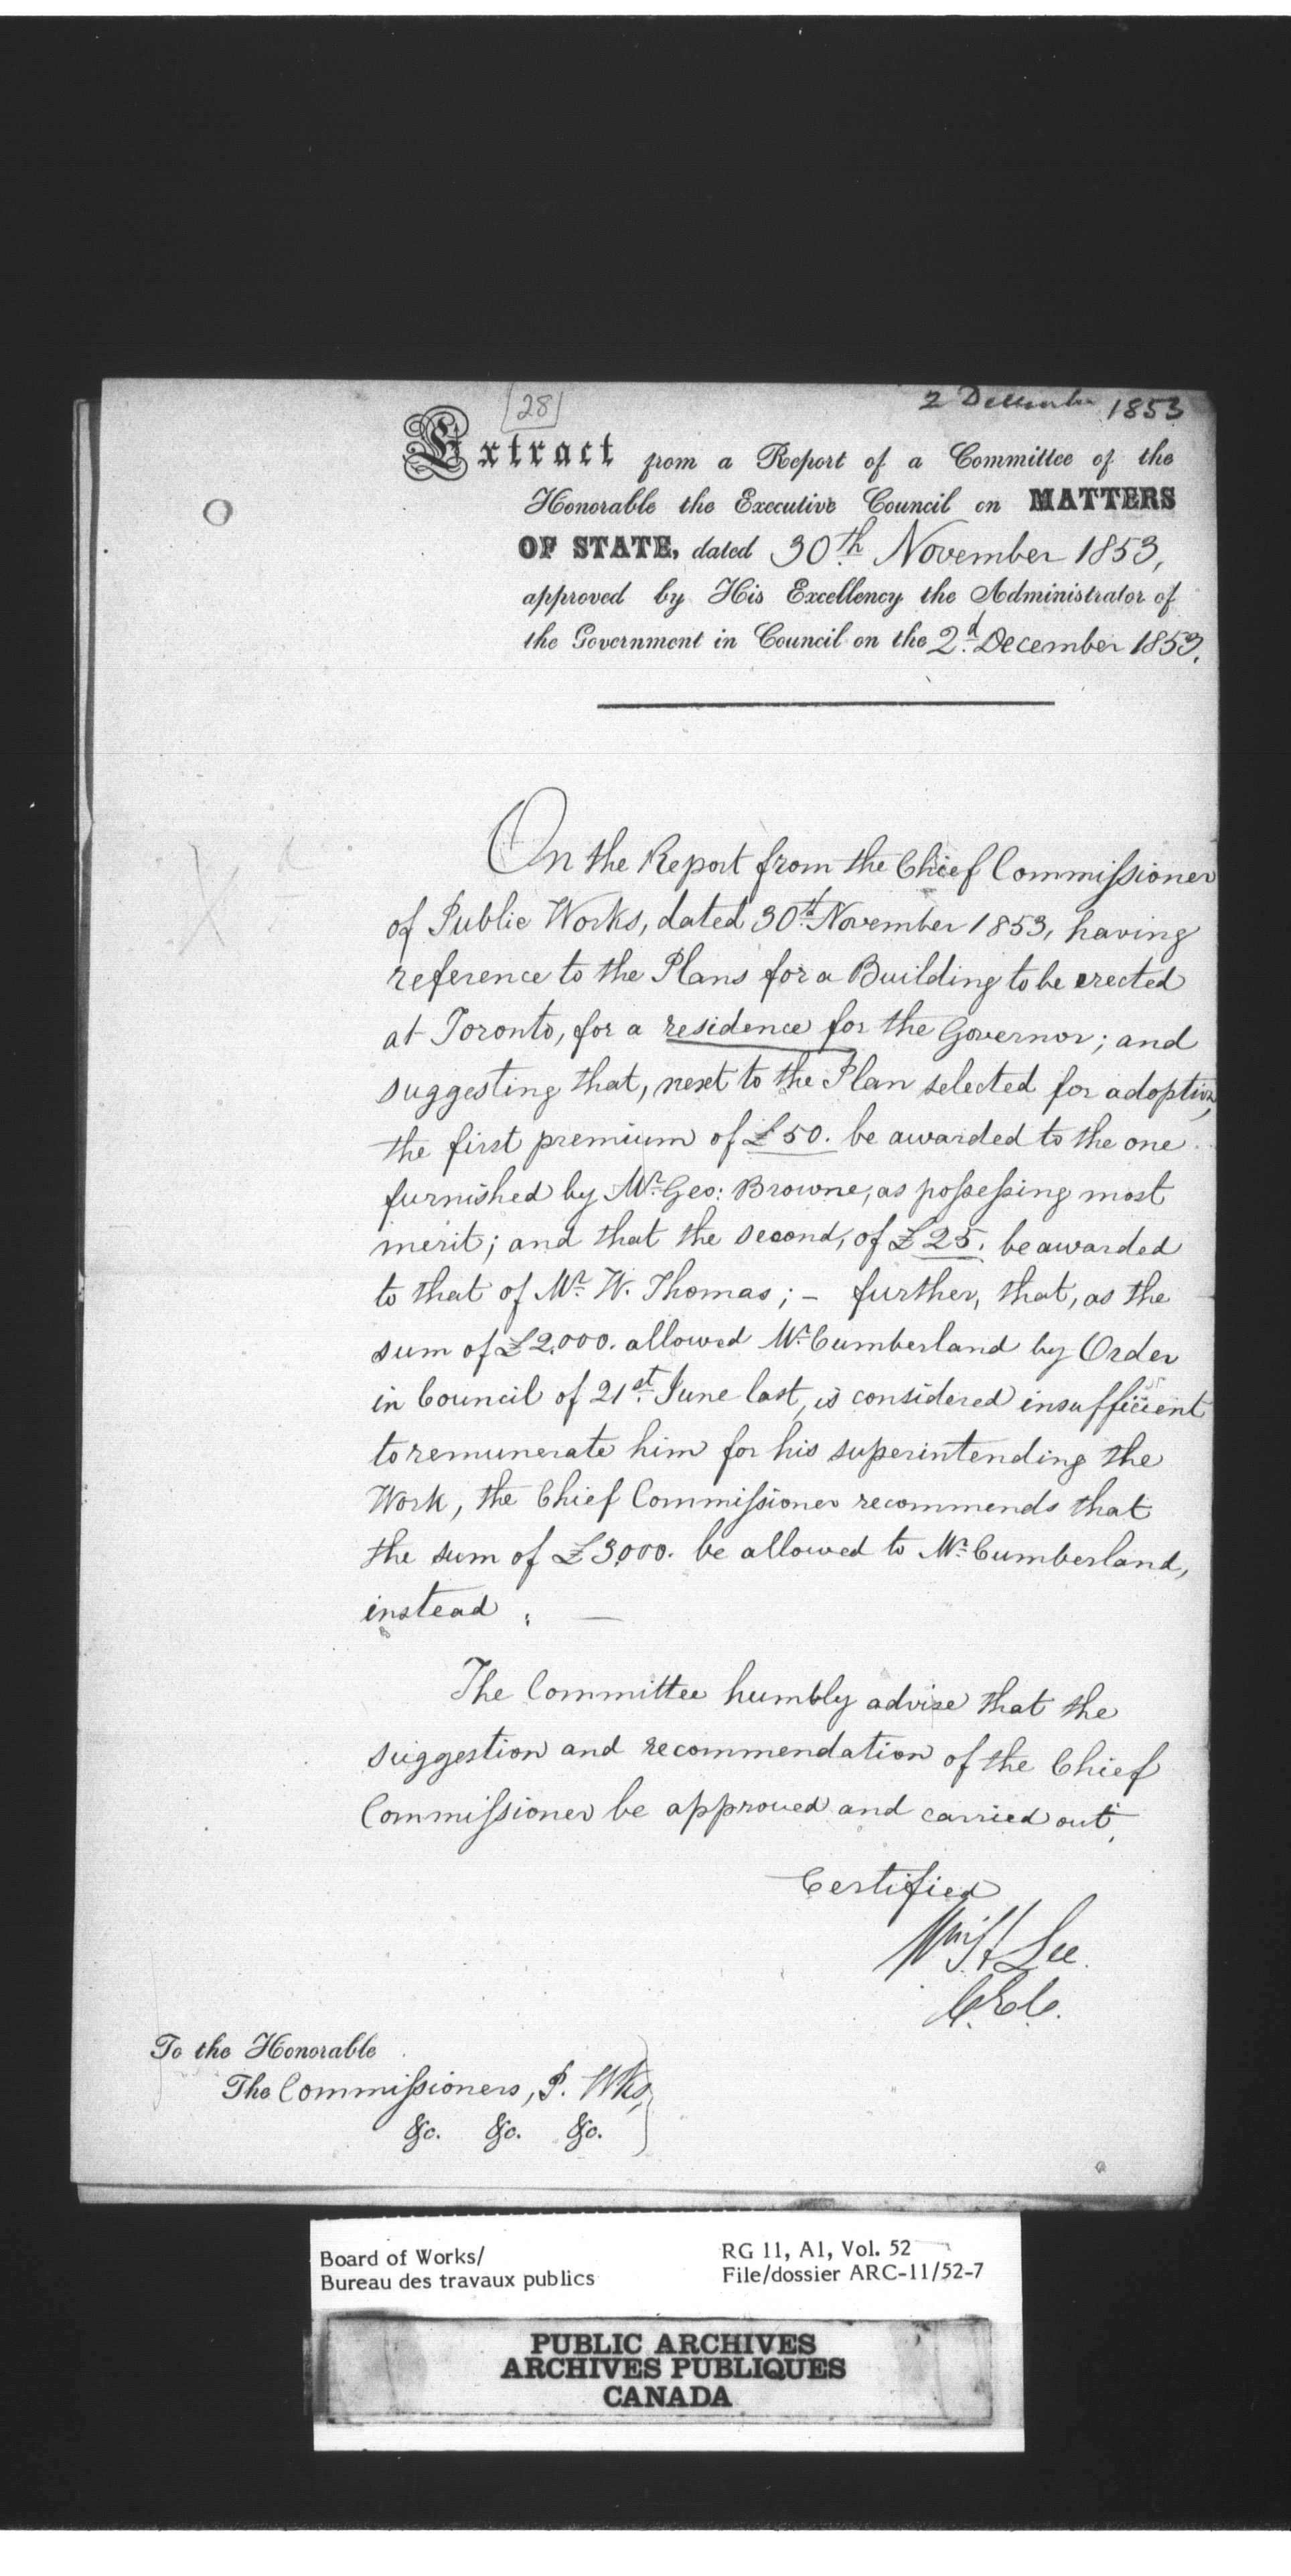 28
2 December 1853
Extract from a Report of a Committee of the
Honorable the Executive Council on MATTERS
OF STATE, dated 30th November 1853,
approved by His Excellency the Administrator of
the Government in Council on the 2d December 1853.
On the Report from the Chief Commissioner
of Public Works, dated 30th November 1853, having
reference to the Plans for a Building to be erected
at Toronto, for a residence for the Governor; and
suggesting that, next to the Plan selected for adoption,
the first premium of £50. be awarded to the one
furnished by Mr Geo: Browne, as possessing most
merit; and that the second, of £25. be awarded
to that of Mr W. Thomas; – further, that, as the
sum of £2,000. allowed Mr Cumberland by Order
in Council of 21st June last, is considered insufficient
to remunerate him for his superintending the
Work, the Chief Commissioner recommends that
the sum of £3,000. be allowed to Mr Cumberland,
instead. —
The Committee humbly advise that the
suggestion and recommendation of the Chief
Commissioner be approved and carried out.
Certified
Wm H Lee
C.E.C.
To the Honorable
The Commissioners, P. Wks,
&c. &c. &c.
Board of Works/
Bureau des travaux publics
RG 11, A1, Vol. 52
File/dossier ARC-11/52-7
PUBLIC ARCHIVES
ARCHIVES PUBLIQUES
CANADA